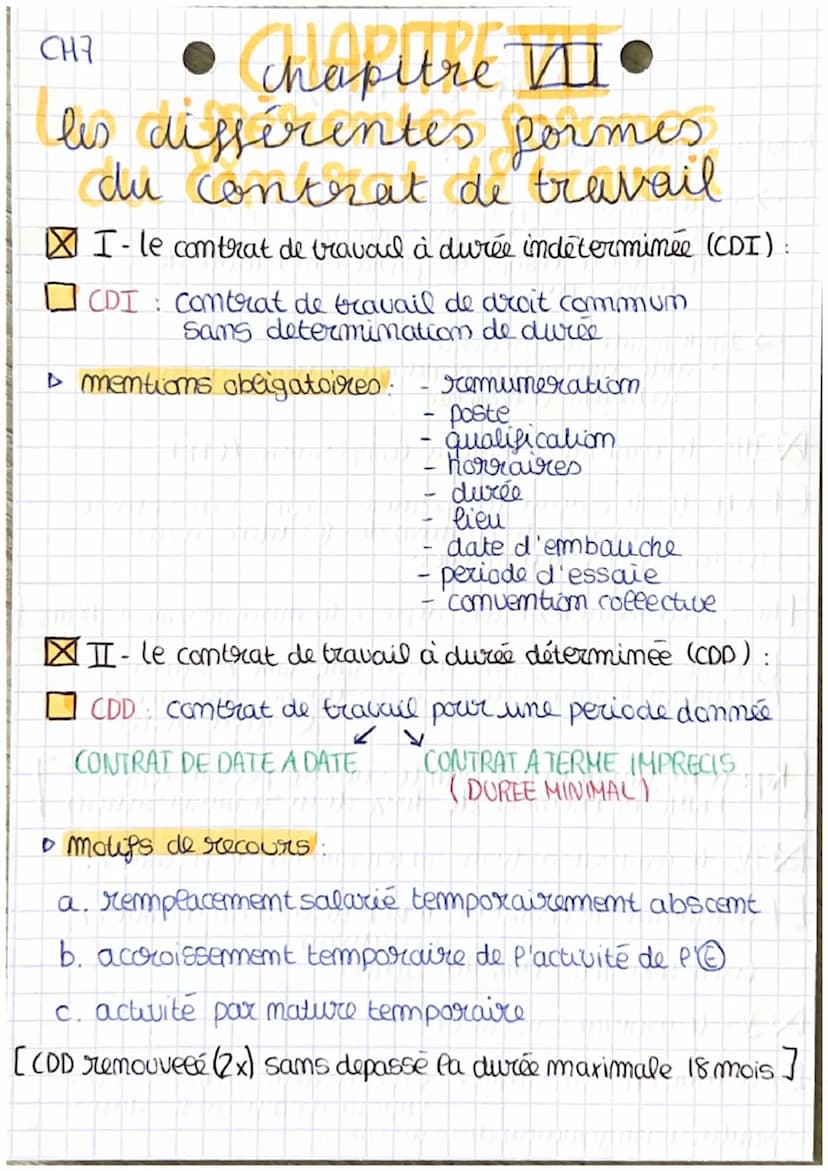 CH7
CHAPITRE VII
chapitre VII
les différentes formes
du contrat de travail
I - le contrat de travail à durée indéterminée (CDI) :
CDI : contrat de travail de droit commun
sans determination de durée
mentions obligatoires : - remuneration
- poste
- qualification
- horraires
- durée
- lieu
- date d'embauche
- periode d'essaie
- convention collective
II - le contrat de travail à durée déterminée (CDD) :
CDD : contrat de travail pour une periode donnée
CONTRAT DE DATE A DATE CONTRAT A TERME IMPRECIS
(DUREE MINIMAL)
motifs de recours :
a. remplacement salarié temporairement abscent
b. accroissement temporaire de l'activité de l'Ⓔ
c. activité par nature temporaire
[CDD renouvelé (2x) sans depassé la durée maximale 18 mois]